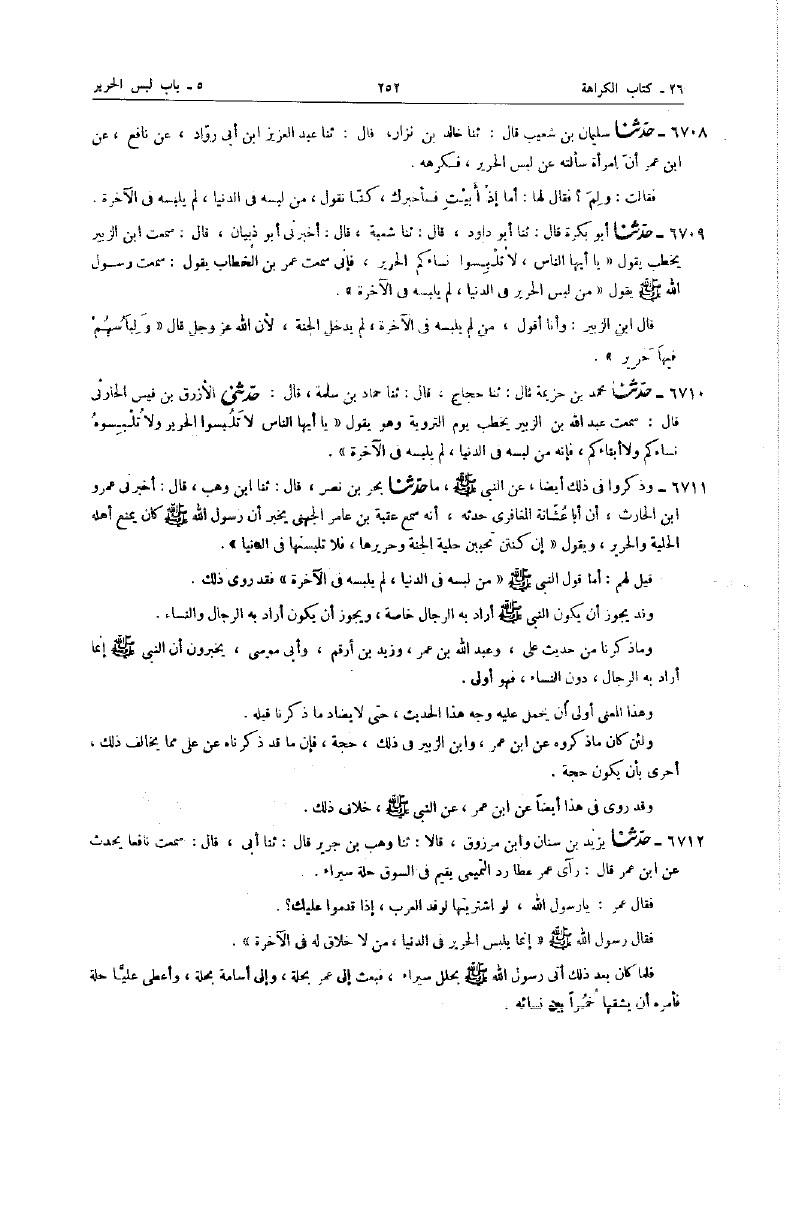 ٢٦ ـ كتاب الكراهة ٢٥٢ ٥ ـ باب لبس الحرير
٦٧٠٨ ـ حدثنا سليمان بن شعيب قال : ثنا خالد بن نزار، قال : ثنا عبد العزيز ابن أبى روّاد ، عن نافع ، عن
ابن عمر أنّ امرأة سألته عن لبس الحرير ، فكرهه .
فقالت : ولِمَ ؟ فقال لها : أما إذْ أبَيْتِ فسأخبرك ، كنّا نقول ، من لبسه فى الدنيا ، لم يلبسه فى الآخرة .
٦٧٠٩ ـ حدثنا أبو بكرة قال : ثنا أبو داود ، قال : ثنا شعبة ، قال : أخبرنى أبو ذبيان ، قال : سمعت ابن الزبير
يخطب يقول « يا أيها الناس ، لا تُلْبِسوا نساءكم الحرير ، فإنى سمعت عمر بن الخطاب يقول : سمعت رسول
الله ﷺ يقول « من لبس الحرير فى الدنيا ، لم يلبسه فى الآخرة » .
قال ابن الزبير : وأنا أقول ، من لم يلبسه فى الآخرة ، لم يدخل الجنة ، لأن الله عز وجل قال « وَلِبَاسُهُمْ
فِيهَا حَرِير » .
٦٧١٠ ـ حدثنا محمد بن خزيمة قال : ثنا حجاج ، قال : ثنا حماد بن سلمة ، قال : حدثنى الأزرق بن قيس الحارثى
قال : سمعت عبد الله بن الزبير يخطب يوم التروية وهو يقول « يا أيها الناس لا تَلْبسوا الحرير ولا تُلْبِسوهُ
نساءكم ولا أبناءكم ، فإنه من لبسه فى الدنيا ، لم يلبسه فى الآخرة » .
٦٧١١ ـ وذكروا فى ذلك أيضا ، عن النبى ﷺ ، ما حدثنا بحر بن نصر ، قال : ثنا ابن وهب ، قال : أخبرنى عمرو
ابن الحارث ، أن أبا عُشَّانة المَعَافرى حدثه ، أنه سمع عقبة بن عامر الجهنى يخبر أن رسول الله ﷺ كان يمنع أهله
الحلية والحرير ، ويقول « إن كنتن تحببن حلية الجنة وحريرها ، فلا تلبسنها فى الدنيا » .
قيل لهم : أما قول النبى ﷺ « من لبسه فى الدنيا ، لم يلبسه فى الآخرة » فقد روى ذلك .
وقد يجوز أن يكون النبى ﷺ أراد به الرجال خاصة ، ويجوز أن يكون أراد به الرجال والنساء .
وما ذكرنا من حديث على ، وعبد الله بن عمر ، وزيد بن أرقم ، وأبى موسى ، يخبرون أن النبى ﷺ إنما
أراد به الرجال ، دون النساء ، فهو أولى .
وهذا المعنى أولى أن يحمل عليه وجه هذا الحديث ، حتى لا يضاد ما ذكرنا قبله .
ولئن كان ما ذكروه عن ابن عمر ، وابن الزبير فى ذلك ، حجة ، فإن ما قد ذكرناه عن على مما يخالف ذلك ،
أحرى بأن يكون حجة .
وقد روى فى هذا أيضاً عن ابن عمر ، عن النبى ﷺ ، خلاف ذلك .
٦٧١٢ ـ حدثنا يزيد بن سنان وابن مرزوق ، قالا : ثنا وهب بن جرير قال : ثنا أبى ، قال : سمعت نافعا يحدث
عن ابن عمر قال : رآى عمر عطا رد التميمى يقيم فى السوق حلة سيراء .
فقال عمر : يارسول الله ، لو اشتريتها لوفد العرب ، إذا قدموا عليك؟ .
فقال رسول الله ﷺ « إنما يلبس الحرير فى الدنيا ، من لا خلاق له فى الآخرة » .
فلما كان بعد ذلك أتى رسول الله ﷺ بحلل سيراء ، فبعث إلى عمر بحلة ، وإلى أسامة بحلة ، وأعطى عليًّا حلة
فأمره أن يشقها خُمُراً بين نسائه .